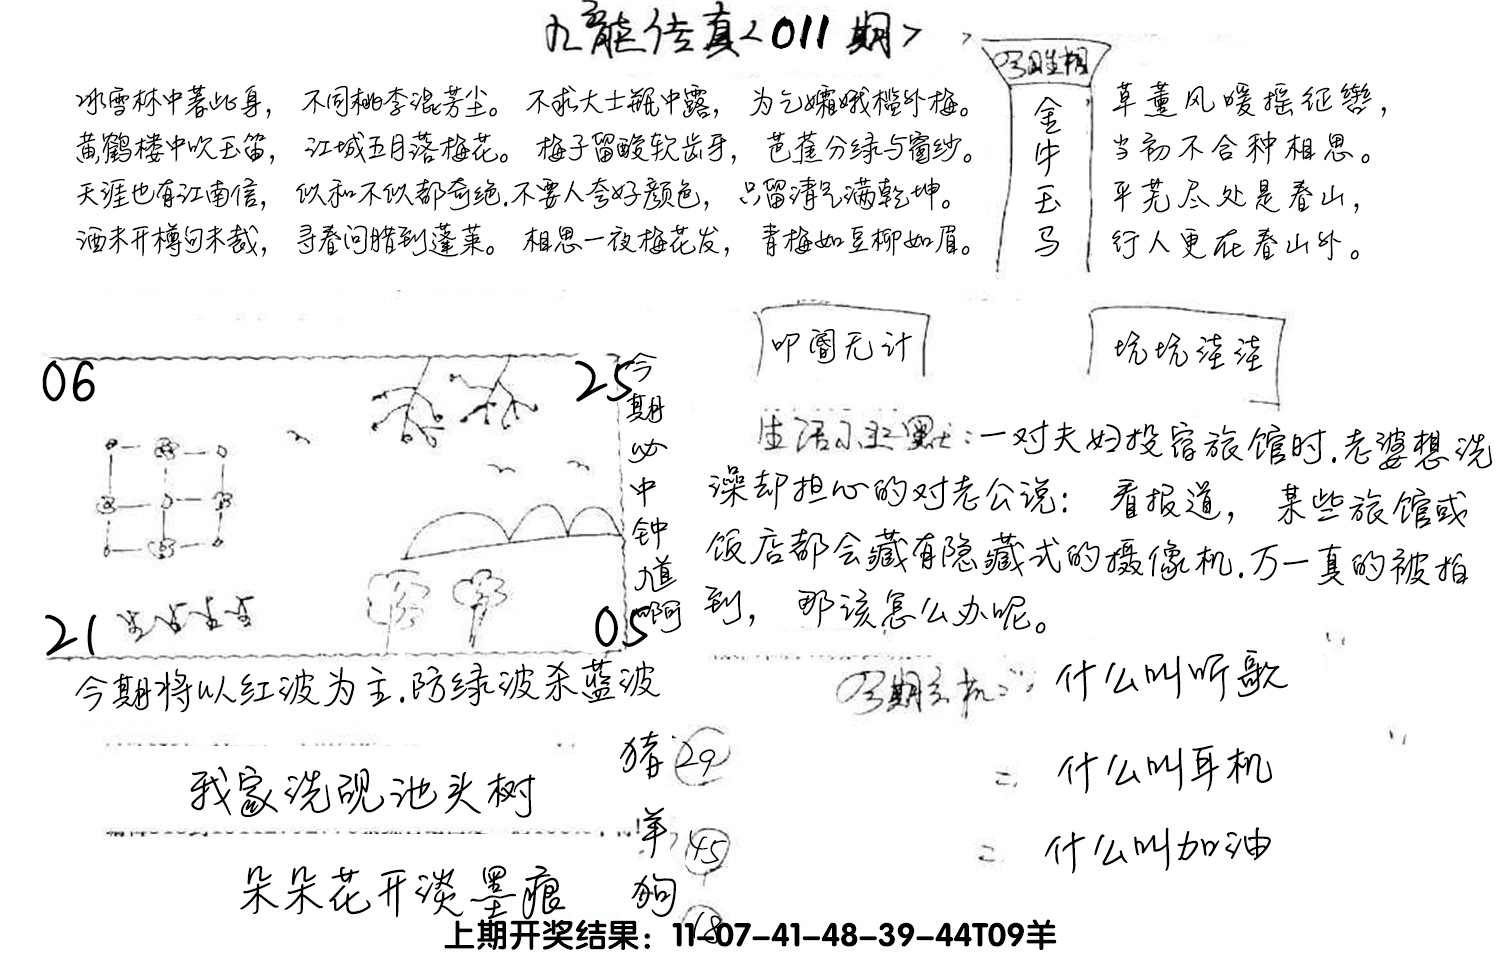 九龙传真<011期>
冰雪林中著此身， 不同桃李混芳尘。 不求大士瓶中露， 为乞孀娥槛外梅。
黄鹤楼中吹玉笛， 江城五月落梅花。 梅子留酸软齿牙， 芭蕉分绿与窗纱。
天涯也有江南信， 似和不似都奇绝.不要人夸好颜色， 只留清气满乾坤。
酒未开樽句未裁， 寻春问腊到蓬莱。 相思一夜梅花发， 青梅如豆柳如眉。
今期生相
金
牛
玉
马
草薰风暖摇征辔，
当初不合种相思。
平芜尽处是春山，
行人更在春山外。
06
25
21
05
今期必中钟馗啊
今期将以红波为主.防绿波杀蓝波
我家洗砚池头树
朵朵花开淡墨痕
猪 29
羊 45
狗 18
叩阍无计
坑坑洼洼
生活小幽默：一对夫妇投宿旅馆时.老婆想洗
澡却担心的对老公说： 看报道， 某些旅馆或
饭店都会藏有隐藏式的摄像机.万一真的被拍
到， 那该怎么办呢。
今期玄机： 什么叫听歌
= 什么叫耳机
= 什么叫加油
上期开奖结果：11-07-41-48-39-44T09羊